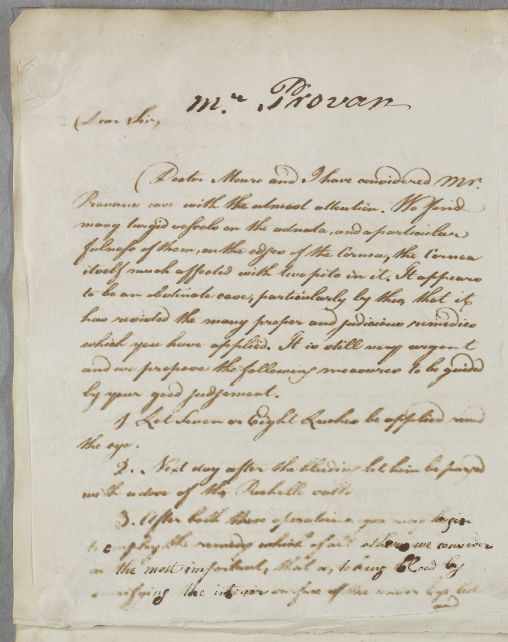 Mr. Provan
Dear Sir,
Doctor Monro and I have considered Mr.
Provans case with the utmost attention. We find
many turgid vessels on the adnata, and a particular
fulness of them, on the edges of the Cornea, the Cornea
itself much affected with two pits in it. It appears
to be an obstinate case, particularly by this, that it
has resisted the many proper and judicious remedies
which you have applied. It is still very urgent
and we propose the following measures to be guided
by your good judgement.
1 Let Seven or Eight Leeches be applied round
the eye.
2. Next day after the bleeding let him be purged
with a dose of the Rochelle salts
3. After both these operations you may begin
to employ the remedy which of all others we consider
as the most important, that is, taking blood by
scarifying the interior surface of the under Eye lid
and